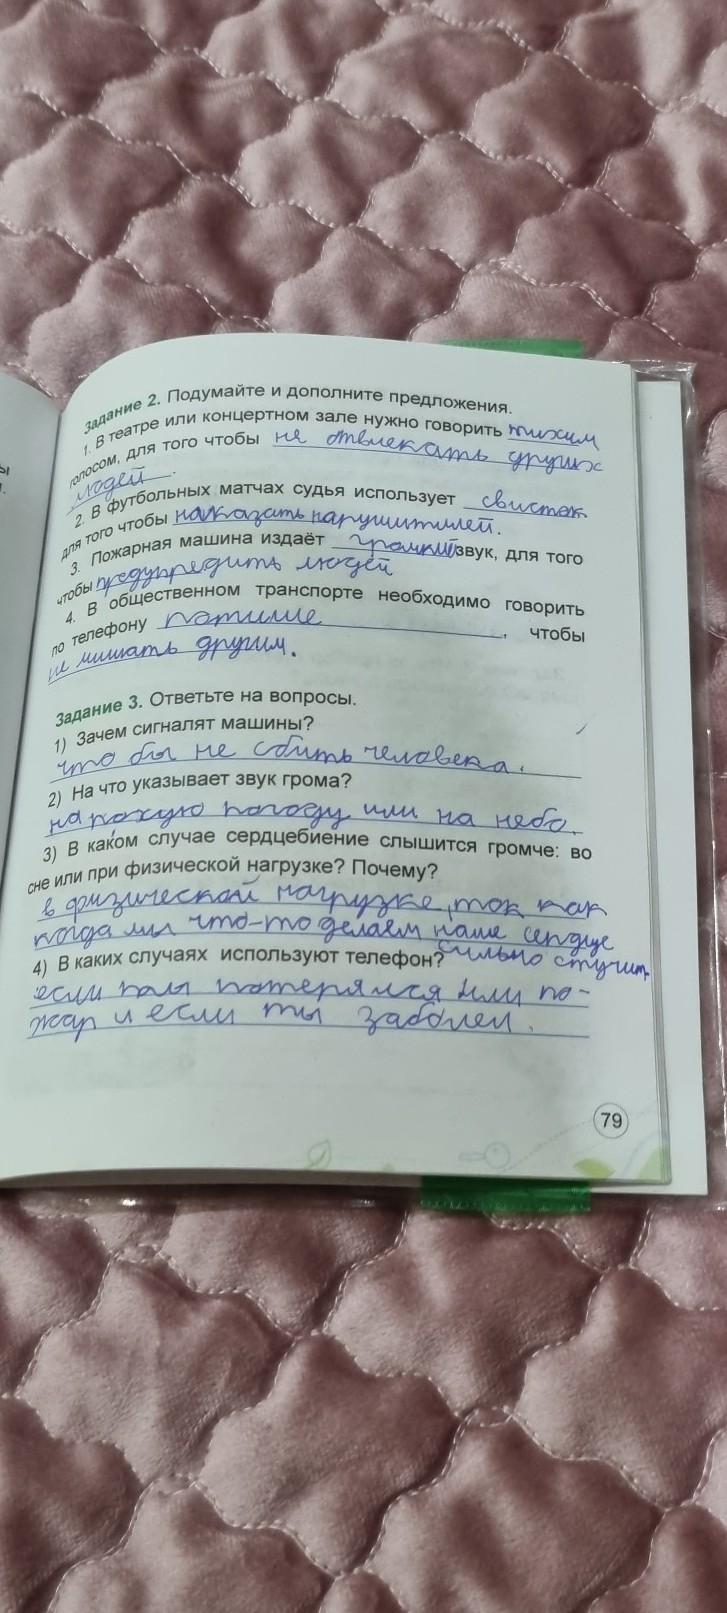 ы
Задание 2. Подумайте и дополните предложения.
1. В театре или концертном зале нужно говорить тихим
голосом, для того чтобы не отвлекать других
людей.
2. В футбольных матчах судья использует свисток
для того чтобы наказать нарушитилей.
3. Пожарная машина издаёт громкий звук, для того
чтобы предупредить людей
4. В общественном транспорте необходимо говорить
по телефону потише, чтобы
не мишать другим.
Задание 3. Ответьте на вопросы.
1) Зачем сигналят машины?
что бы не сбить человека.
2) На что указывает звук грома?
на погоду или на небо.
3) В каком случае сердцебиение слышится громче: во
сне или при физической нагрузке? Почему?
в физической нагрузке, так как
когда мы что-то делаем наше сердце
сильно стучит
4) В каких случаях используют телефон?
если потерялся или по-
жар и если ты заболел.
79